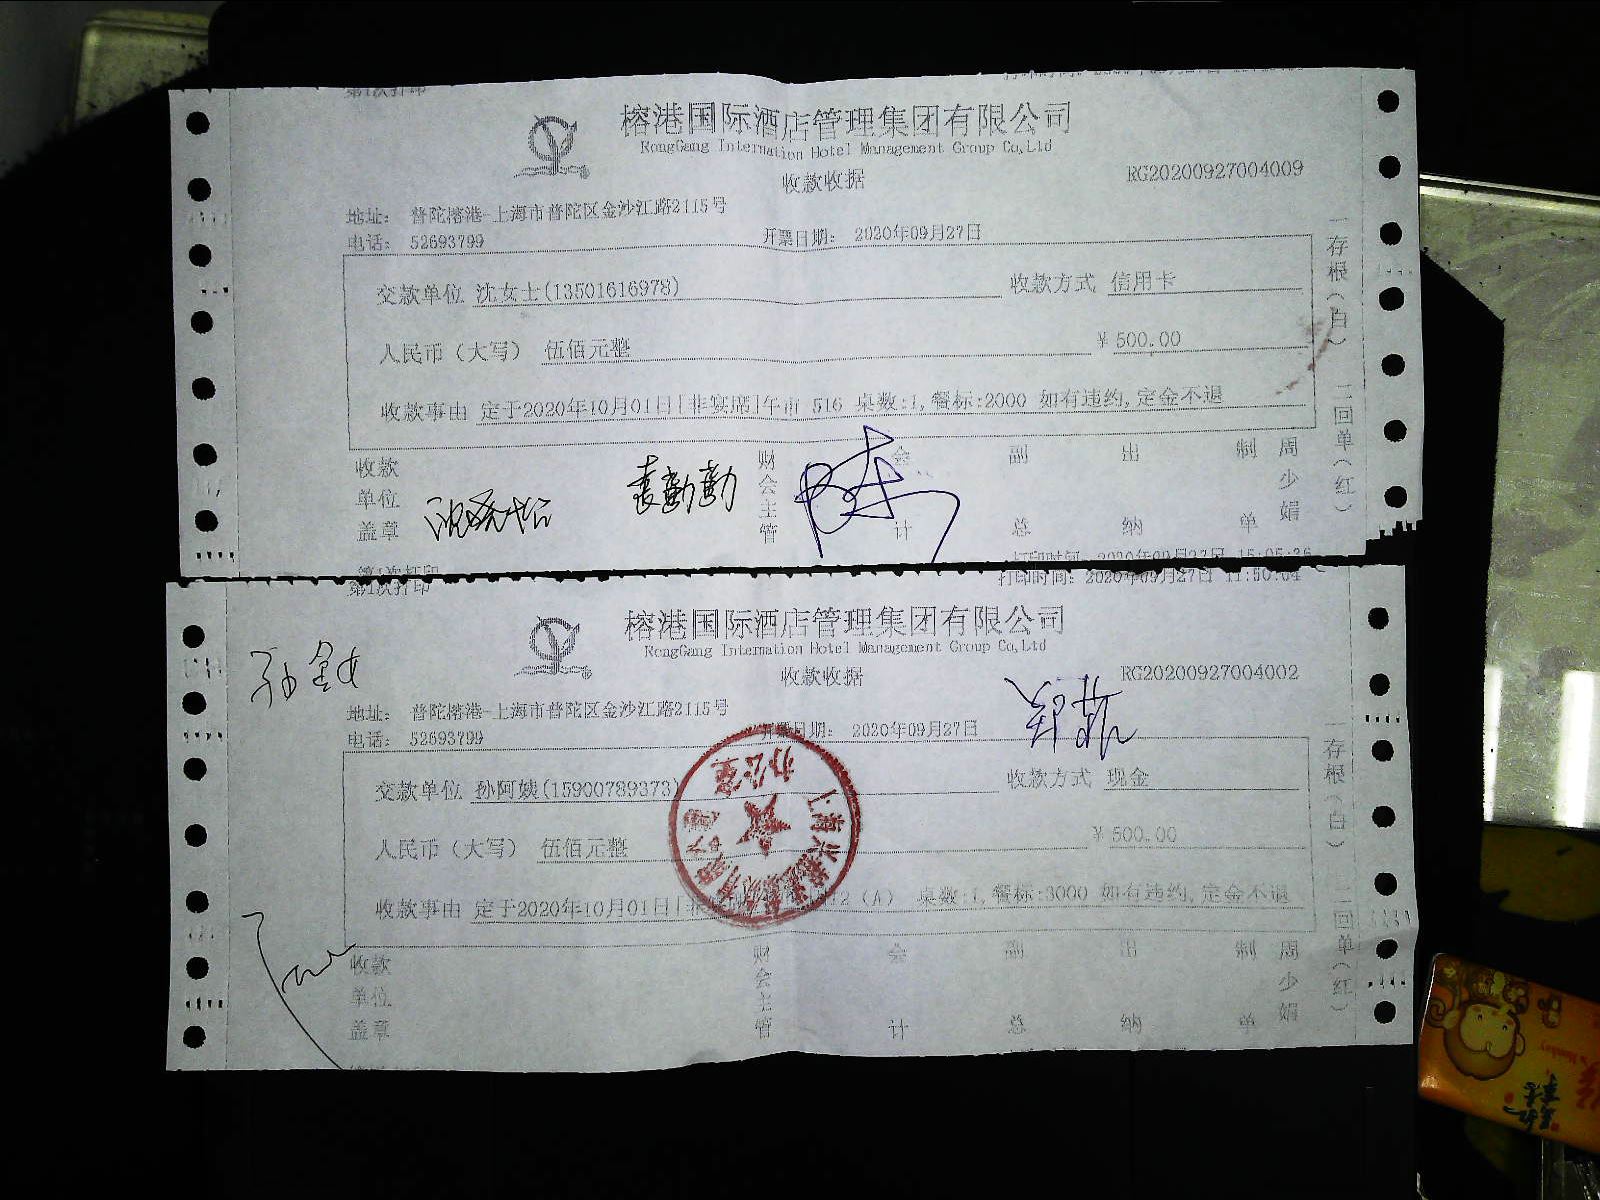 第1次打印
榕港国际酒店管理集团有限公司
RongGang Internation Hotel Management Group Co,Ltd
收款收据
RG20200927004009
地址: 普陀榕港-上海市普陀区金沙江路2115号
电话: 52693799 开票日期: 2020年09月27日
交款单位 沈女士(13501616978) 收款方式 信用卡
人民币（大写） 伍佰元整 ￥500.00
收款事由 定于2020年10月01日|非宴席|午市 516 桌数:1,餐标:2000 如有违约,定金不退
一存根(白) 二回单(红)
收款单位盖章 袁勤勤 财会主管 会计 副总 出纳 制单 周少娟
打印时间: 2020年09月27日 15:05:36
第1次打印
打印时间: 2020年09月27日 11:50:04
第1次打印
榕港国际酒店管理集团有限公司
RongGang Internation Hotel Management Group Co,Ltd
收款收据
RG20200927004002
地址: 普陀榕港-上海市普陀区金沙江路2115号
电话: 52693799 开票日期: 2020年09月27日
交款单位 孙阿姨(15900789373) 收款方式 现金
人民币（大写） 伍佰元整 ￥500.00
收款事由 定于2020年10月01日|非 2 (A) 桌数:1,餐标:3000 如有违约,定金不退
办公室
一存根(白) 二回单(红)
收款单位盖章 财会主管 会计 副总 出纳 制单 周少娟